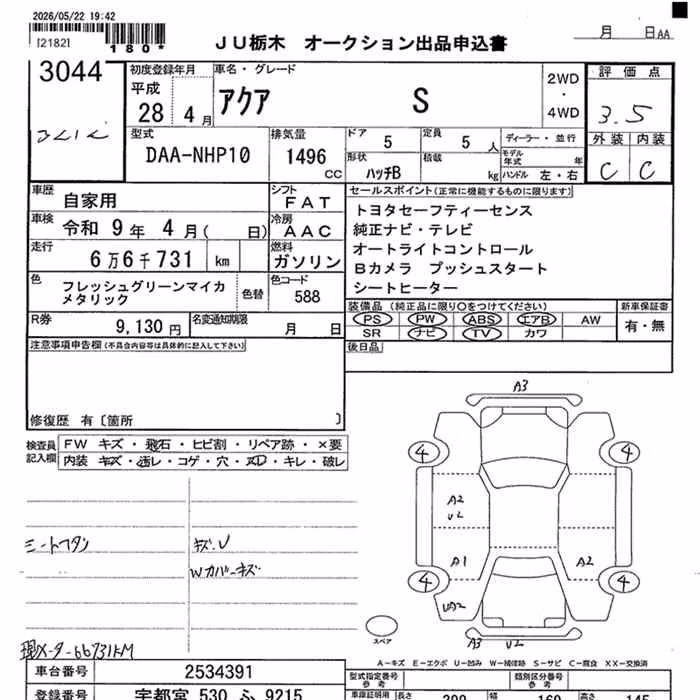 2026/05/22 19:42
[2182]
*180*
JU栃木 オークション出品申込書
月 日AA
3044
初度登録年月
平成
28 4月
車名・グレード
アクア S
2WD
・
4WD
評価点
3.5
外装 内装
C C
型式
DAA-NHP10
排気量
1496
CC
ドア 5
定員 5人
ディーラー・並行
モデル年式 年
形状 ハッチB
積載 kg
ハンドル 左・右
車歴 自家用
シフト
FAT
セールスポイント(正常に機能するものに限ります)
車検 令和 9年 4月( 日)
冷房
AAC
トヨタセーフティーセンス
純正ナビ・テレビ
オートライトコントロール
Bカメラ プッシュスタート
シートヒーター
走行 6万6千731 km
燃料
ガソリン
色 フレッシュグリーンマイカ
メタリック
色替
色コード
588
装備品(純正品に限り○をつけてください)
新車保証書
有・無
PS PW ABS エアB AW
SR ナビ TV カワ
R券 9,130円
名変通知期限
月 日
後日品
注意事項申告欄(不具合内容等は具体的に記入して下さい)
修復歴 有〔箇所 〕
検査員
記入欄
FW キズ・飛石・ヒビ割・リペア跡・×要
内装 キズ・汚レ・コゲ・穴・凹・キレ・破レ
A3
4 4
A2
υ2
A1 A2
4 4
UA2
A3 υ2
スペア
キズ.U
Wカバーキズ
現メーター66731KM
A-キズ E-エクボ U-凹ミ W-補修跡 S-サビ C-腐食 XX-交換済
車台番号 2534391
登録番号 宇都宮 530 ふ 9215
型式指定番号
参考
類別区分番号
参考
車庫証明用
参考
長さ 399 幅 169 高さ 145